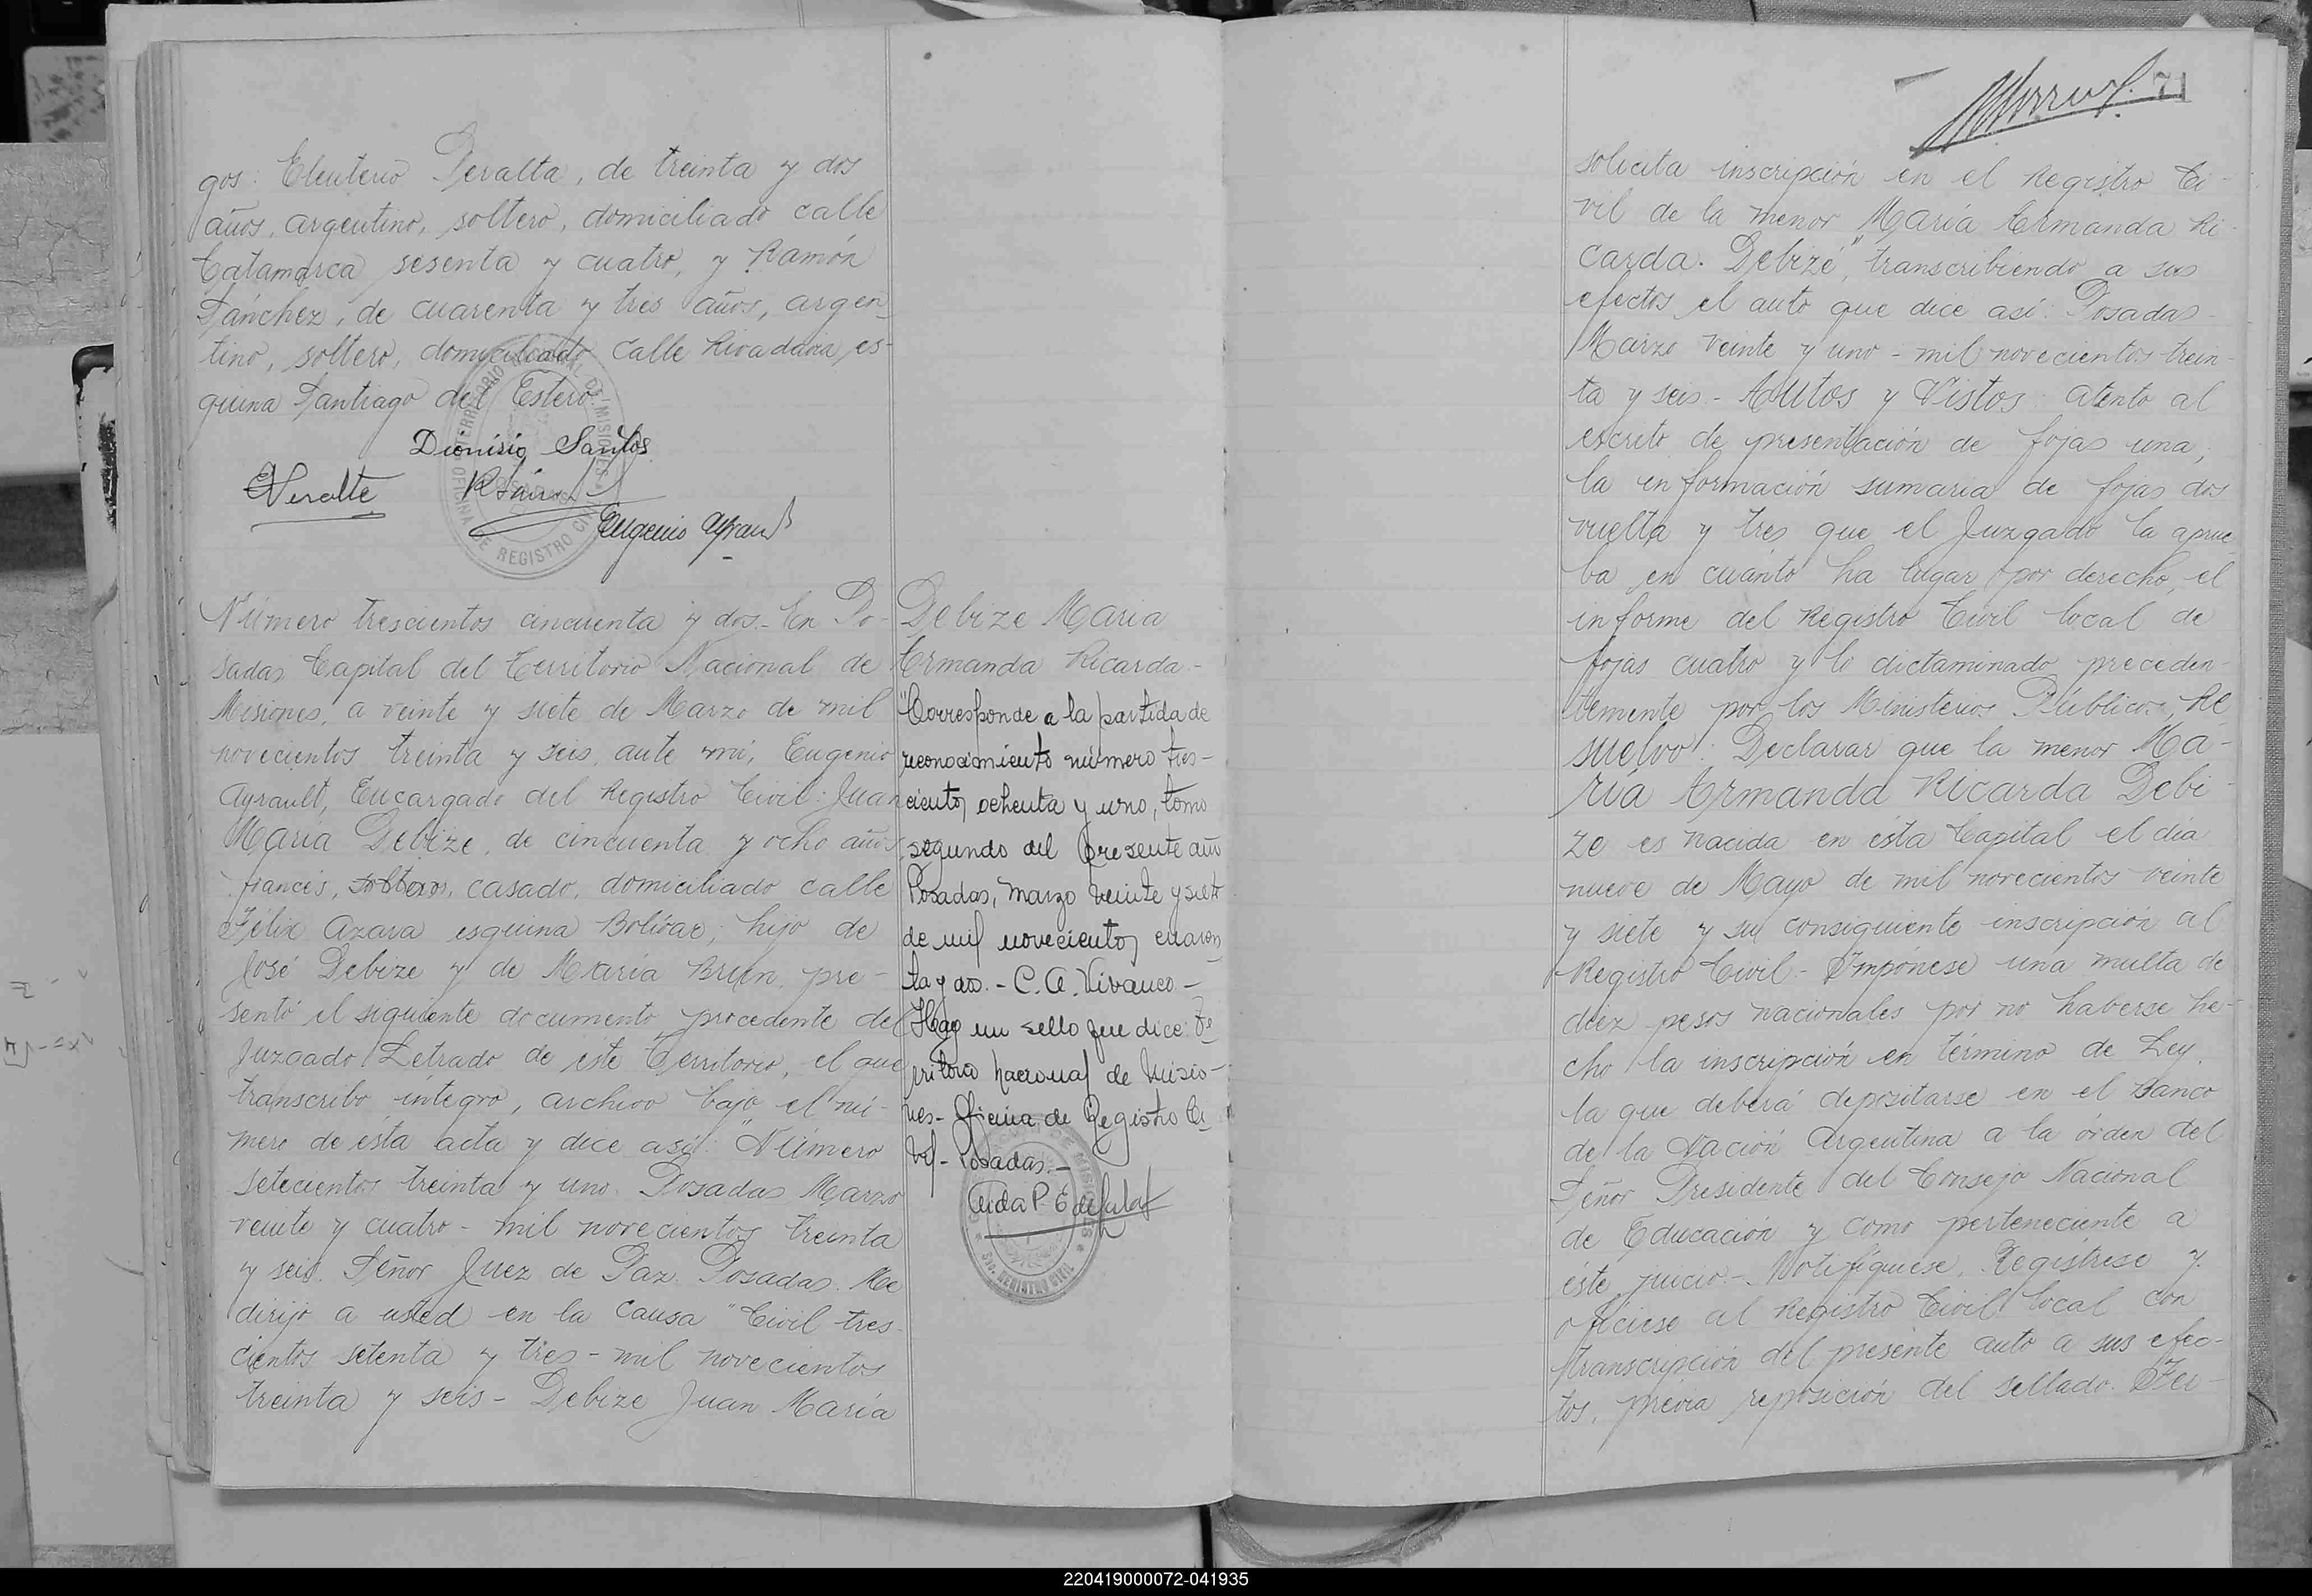 gos: Eleuterio Peralta, de treinta y dos
años, argentino, soltero, domiciliado calle
Catamarca sesenta y cuatro, y Ramón
Sánchez, de cuarenta y tres años, argen-
tino, soltero, domiciliado calle Rivadavia es-
quina Santiago del Estero.
Dionisio Santos
EPeralta
Eugenio Ayrault
OFICINA DE REGISTRO CIVIL
TERRITORIO NACIONAL DE MISIONES
Número trescientos cincuenta y dos.- En Po-
sadas Capital del Territorio Nacional de
Misiones, a veinte y siete de Marzo de mil
novecientos treinta y seis, ante mí, Eugenio
Ayrault, Encargado del Registro Civil: Juan
María Debize, de cincuenta y ocho años,
francés, soltero, casado, domiciliado calle
Félix Azara esquina Bolívar, hijo de
José Debize y de María Brun, pre-
sentó el siguiente documento procedente del
Juzgado Letrado de este Territorio, el que
transcribo íntegro, archivo bajo el nú-
mero de esta acta y dice así: "Número
setecientos treinta y uno. Posadas Marzo
veinte y cuatro - mil novecientos treinta
y seis. Señor Juez de Paz. Posadas. Me
dirijo a usted en la causa "Civil tres-
cientos setenta y tres - mil novecientos
treinta y seis - Debize Juan María
Debize Maria
Armanda Ricarda.-
"Corresponde a la partida de
reconocimiento número tres-
cientos ochenta y uno, tomo
segundo del presente año
Posadas, marzo veinte y siete
de mil novecientos cuaren-
ta y dos. - C. A. Vivanco. -
Hay un sello que dice: Te-
rritorio Nacional de Misio-
nes - Oficina de Registro Ci-
vil - Posadas. -
Aida P. E de
REGISTRO CIVIL
71
solicita inscripción en el Registro Ci-
vil de la menor María Armanda Ri-
carda Debize", transcribiendo a sus
efectos el auto que dice así: Posadas
Marzo veinte y uno - mil novecientos trein-
ta y seis.- Autos y Vistos: Atento al
escrito de presentación de fojas una,
la información sumaria de fojas dos
vuelta y tres que el Juzgado la aprue-
ba en cuanto ha lugar por derecho, el
informe del Registro Civil local de
fojas cuatro y lo dictaminado preceden-
temente por los Ministerios Públicos, Re-
suelvo: Declarar que la menor Ma-
ría Armanda Ricarda Debi-
ze es nacida en esta Capital el día
nueve de Mayo de mil novecientos veinte
y siete y su consiguiente inscripción al
Registro Civil - Impónese una multa de
diez pesos nacionales por no haberse he-
cho la inscripción en término de Ley,
la que deberá depositarse en el Banco
de la Nación Argentina a la órden del
Señor Presidente del Consejo Nacional
de Educación y como perteneciente a
éste juicio.- Notifíquese, Regístrese y
ofíciese al Registro Civil local con
transcripción del presente auto a sus efec-
tos, previa reposición del sellado. Fdo-
220419000072-041935